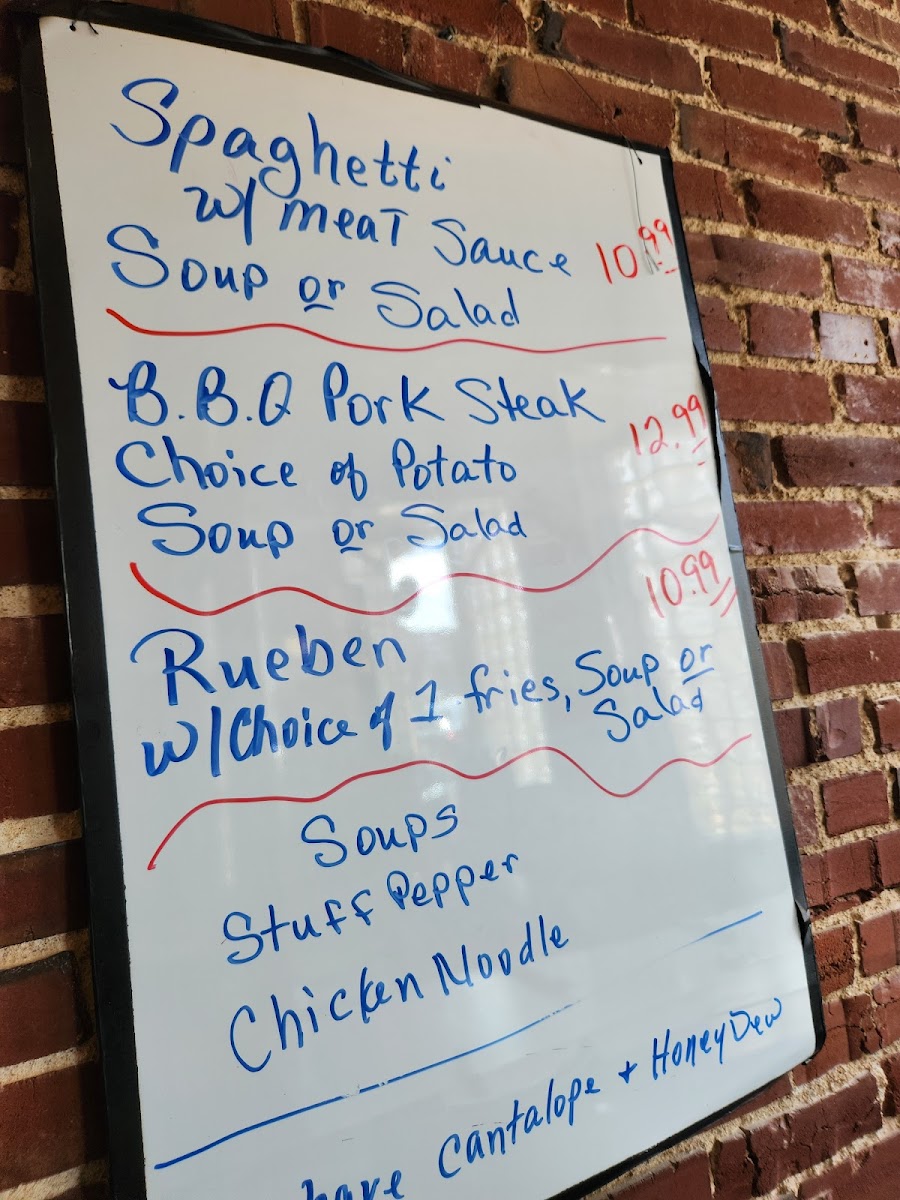 Spaghetti
w/ meat Sauce 10.99
Soup or Salad
B.B.Q Pork Steak
Choice of Potato 12.99
Soup or Salad
Rueben 10.99
w/Choice of 1 fries, Soup or
Salad
Soups
Stuff Pepper
Chicken Noodle
have Cantalope + HoneyDew